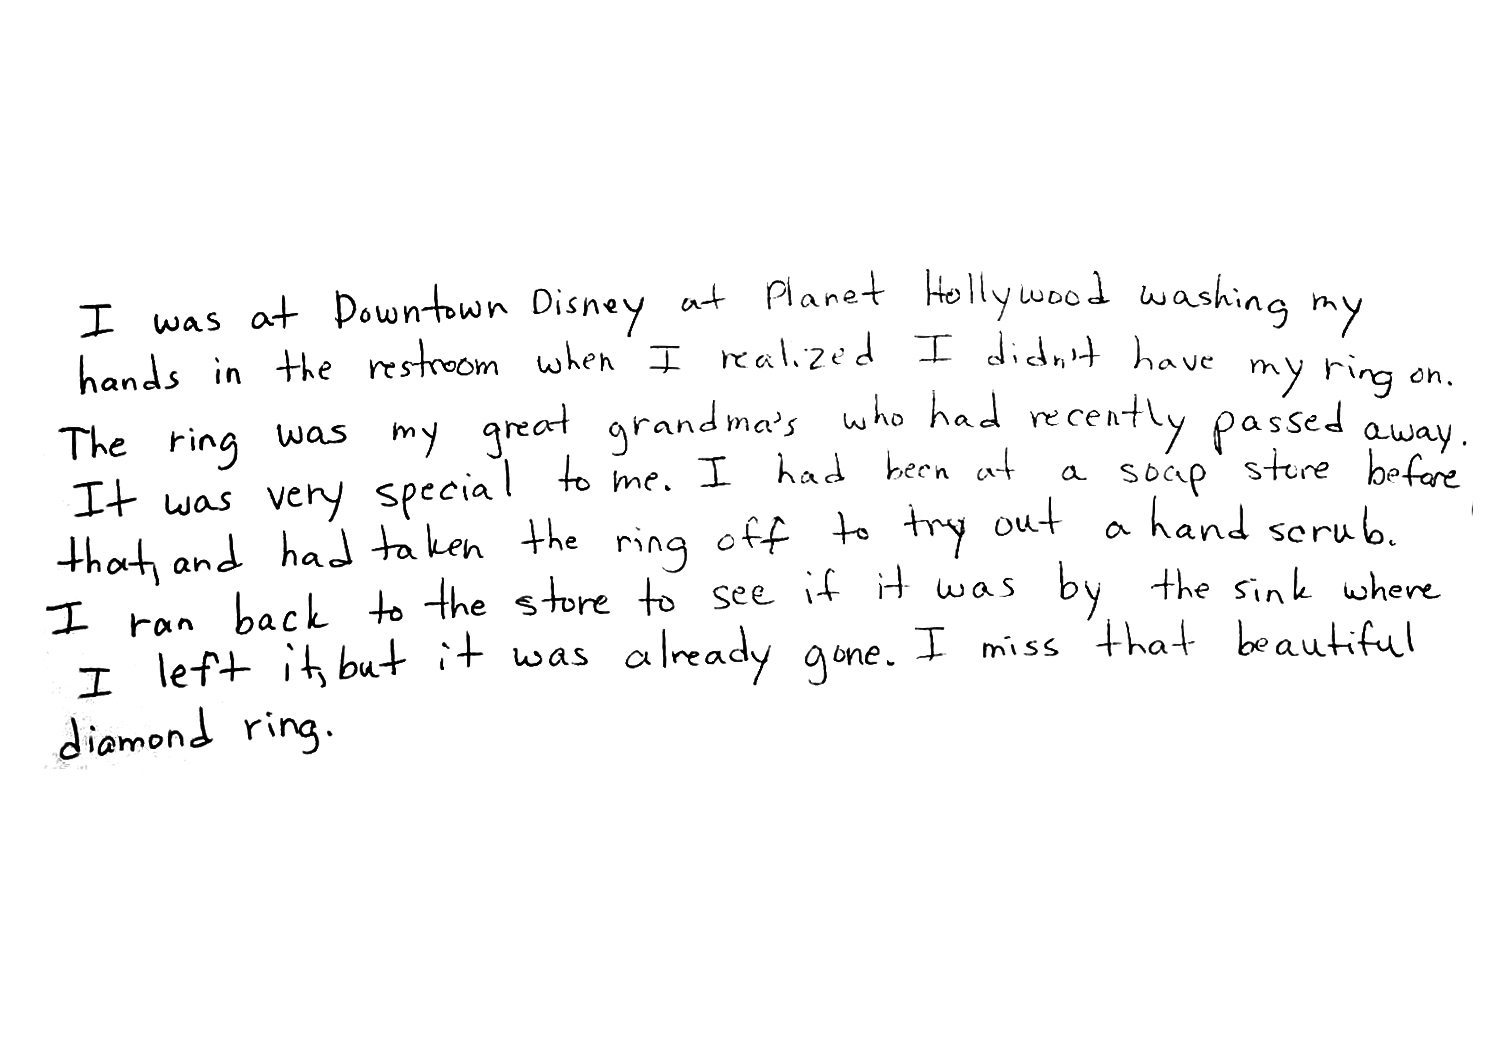 I was at Downtown Disney at Planet Hollywood washing my
hands in the restroom when I realized I didn't have my ring on.
The ring was my great grandma's who had recently passed away.
It was very special to me. I had been at a soap store before
that, and had taken the ring off to try out a hand scrub.
I ran back to the store to see if it was by the sink where
I left it, but it was already gone. I miss that beautiful
diamond ring.